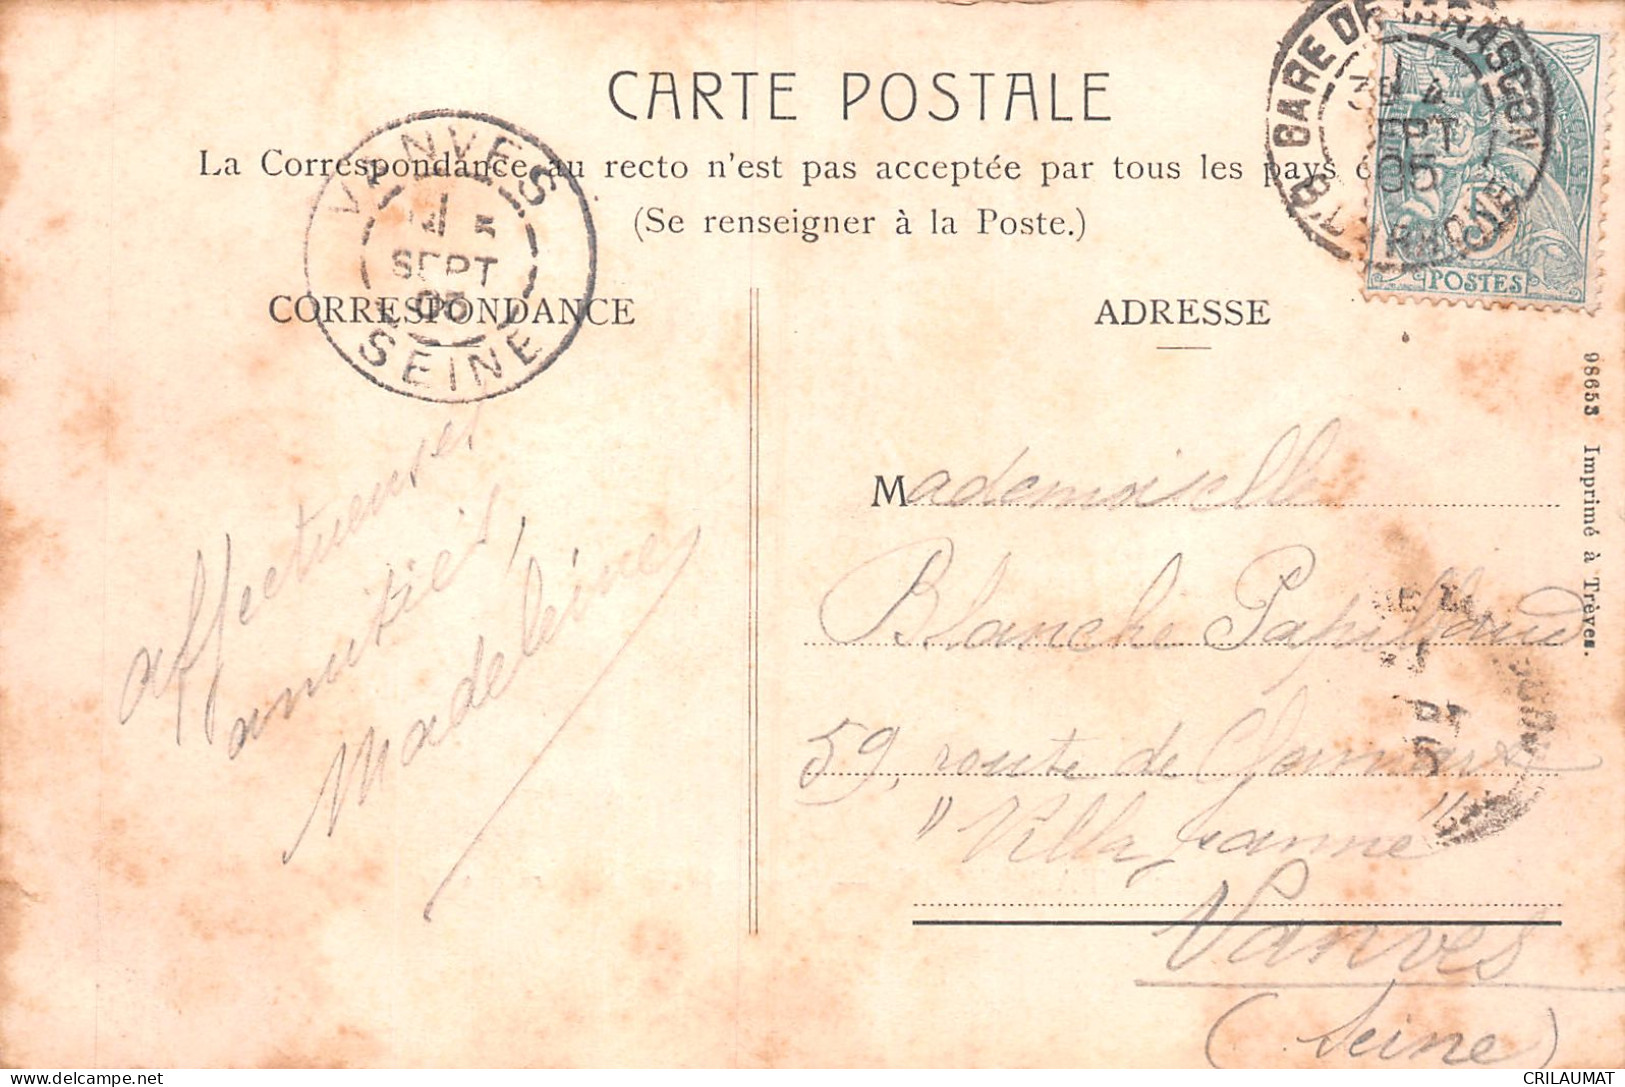 CARTE POSTALE
La Correspondance au recto n'est pas acceptée par tous les pays
(Se renseigner à la Poste.)
GARE DE TARASCON
SEPT
05
Bᶜʰᵉˢ DU RHONE
5
POSTES
VANVES
SEPT
05
SEINE
CORRESPONDANCE
affectueuses
amitiés,
Madeleine
ADRESSE
Mademoiselle
Blanche Papillaud
59, route de Clamart
"Villa Jeanne"
Vanves
(Seine)
98653 Imprimé à Trèves.
CRILAUMAT